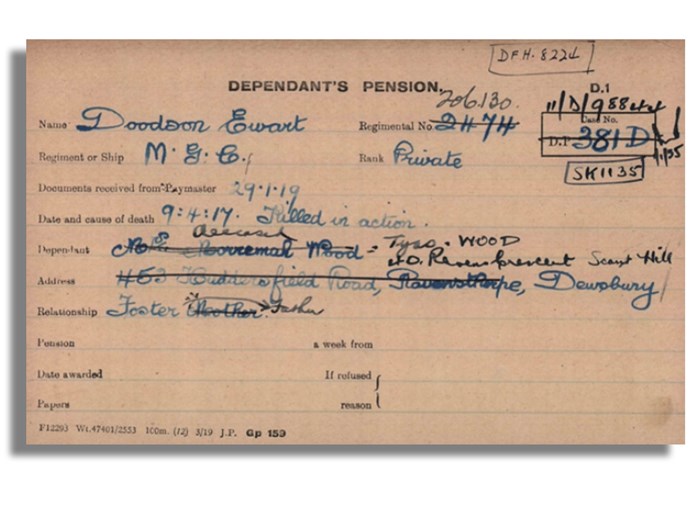 DFH. 8224
DEPENDANT'S PENSION.
D.1
206.130.
11/D/988
Name Doodson Ewart
Regimental No 2474
Case No.
D.P 381D
Regiment or Ship M.G.C.
Rank Private
SK1135
Documents received from Paymaster 29.1.19
Date and cause of death 9.4.17. Killed in action.
deceased
Dependant Mrs Wood = Tyso. WOOD
Scout Hill
Address 453 Huddersfield Road, Ravensthorpe, Dewsbury
Relationship Foster Mother. Father
Pension a week from
Date awarded If refused
Papers reason
F12293 Wt.47401/2553 100m. (12) 3/19 J.P. Gp 159